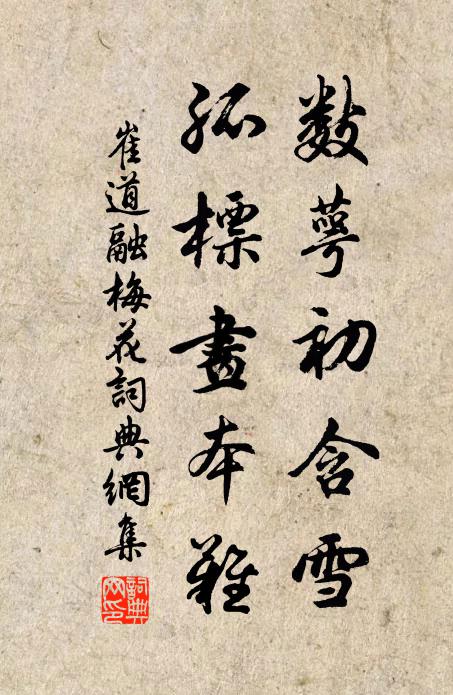 數萼初含雪
孤標畫本難
崔道融梅花詞典網集
詞典網印